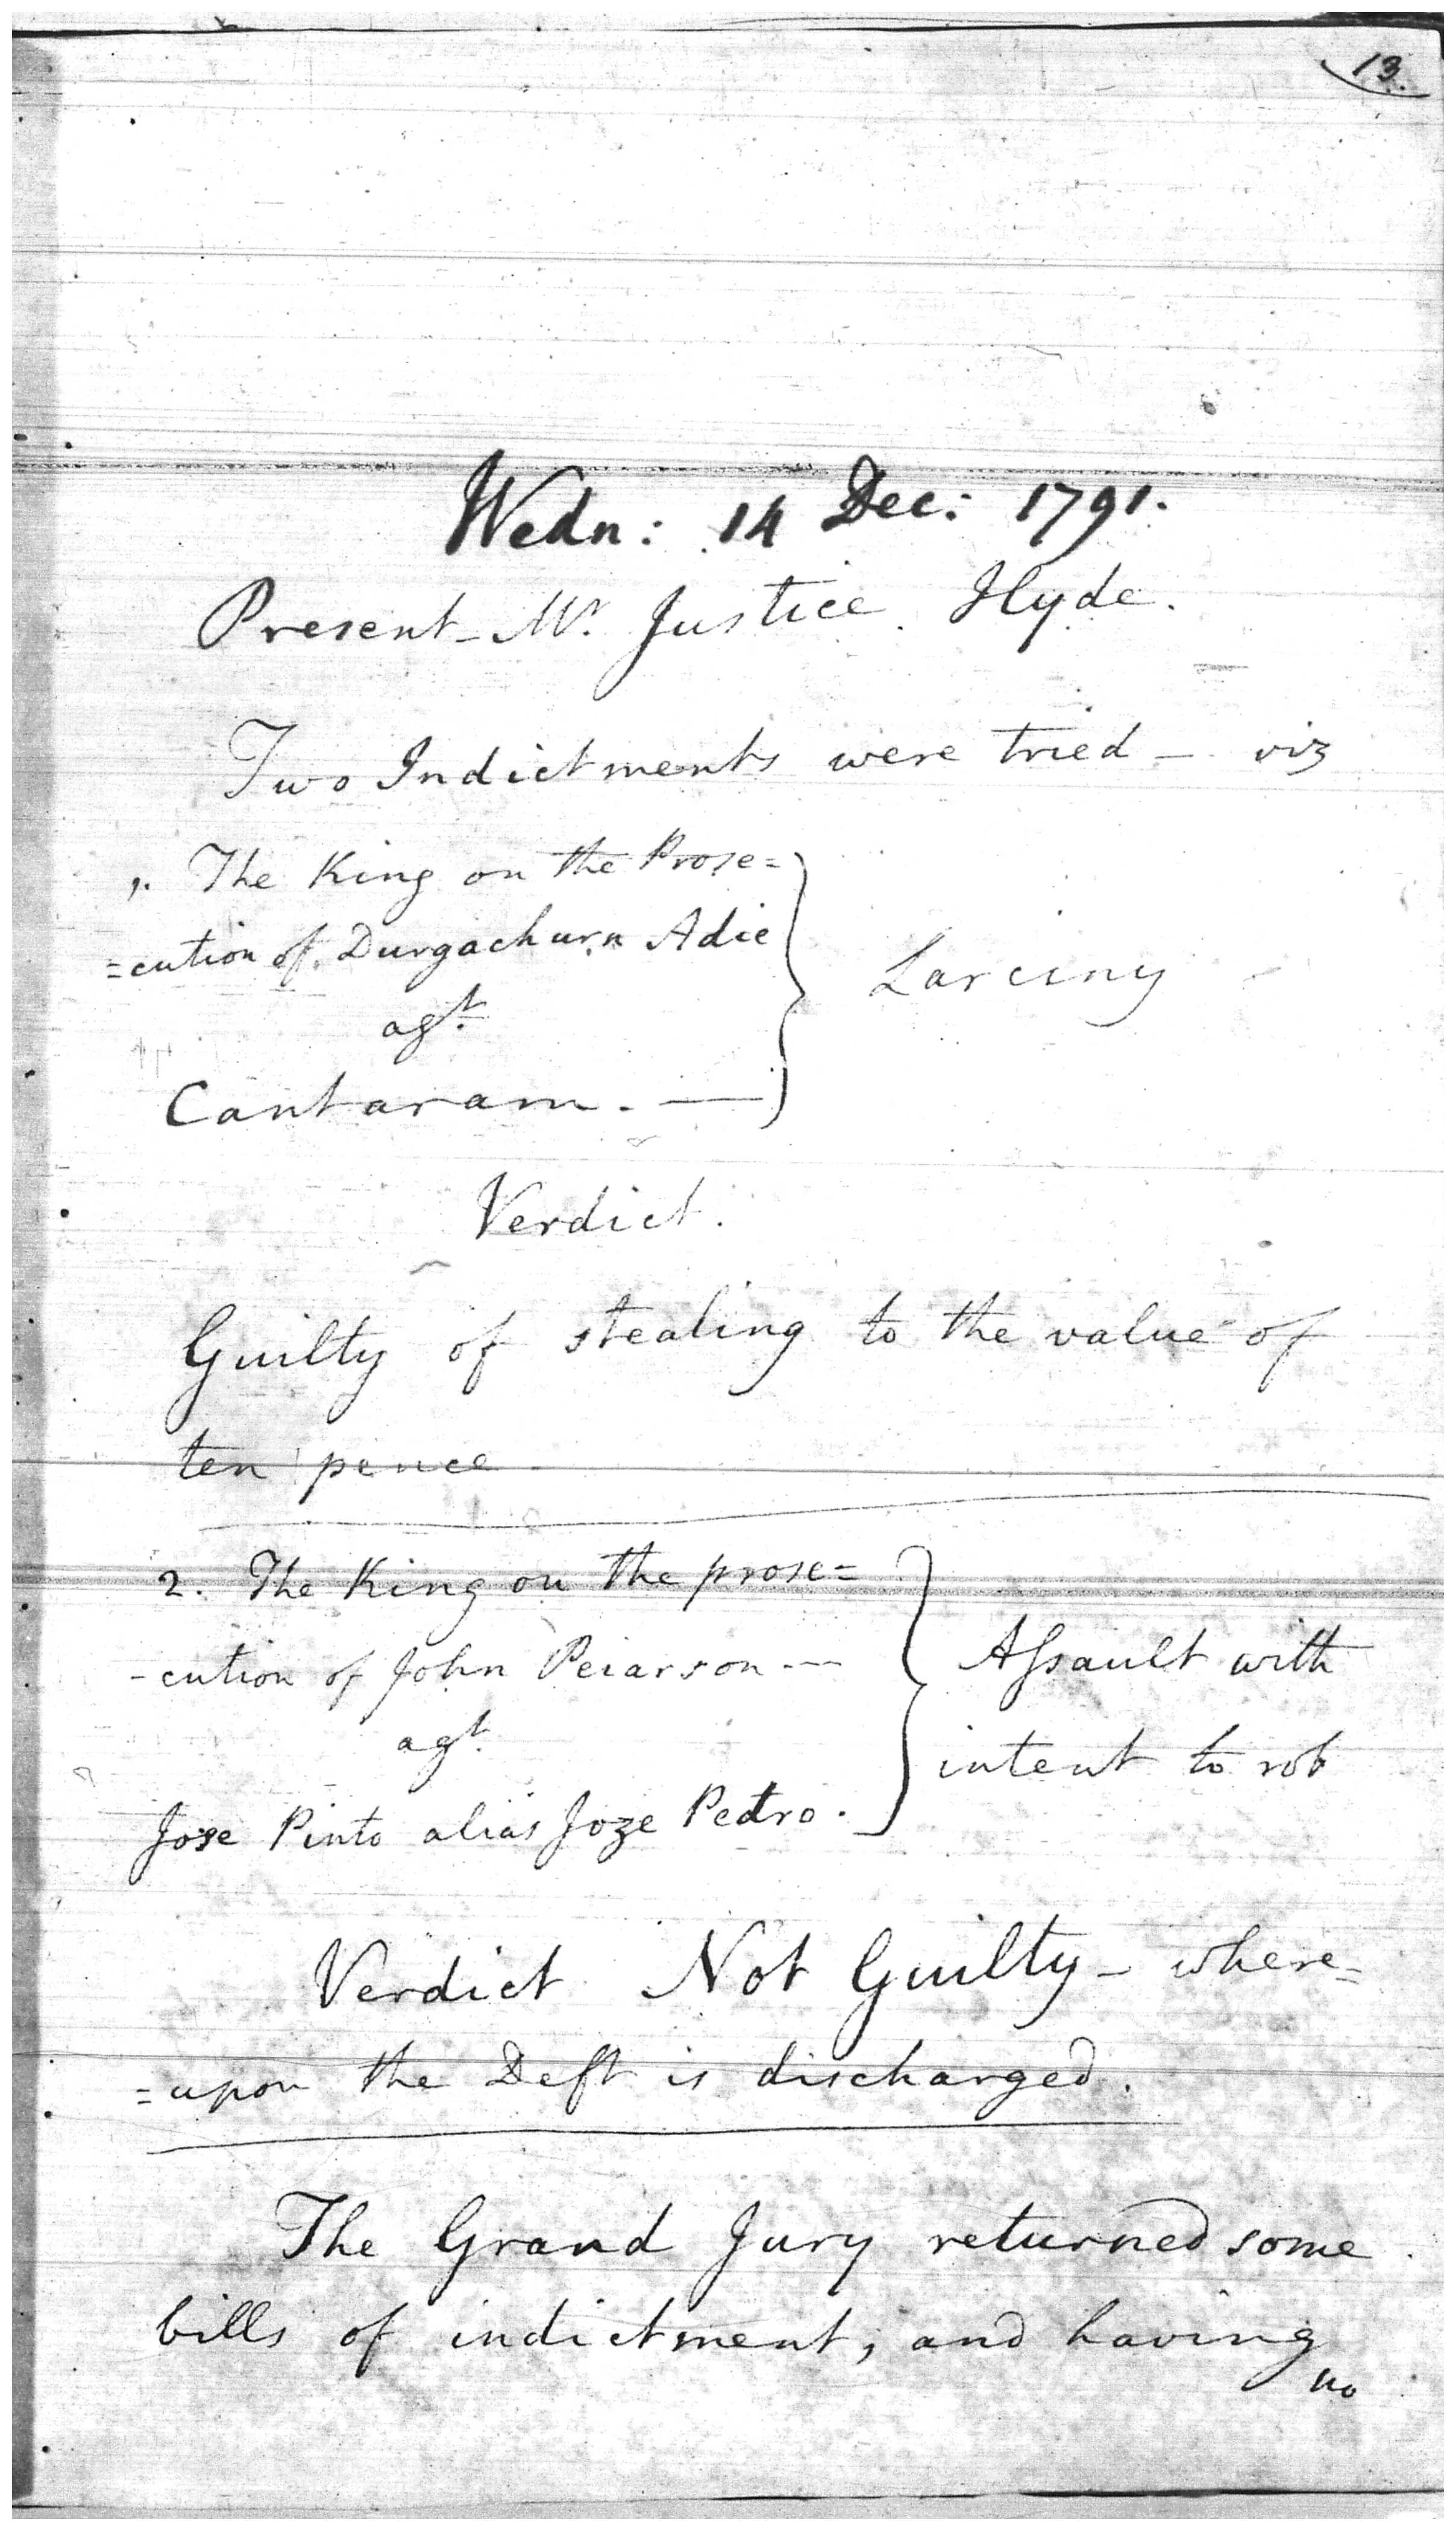 13.
Wedn: 14 Dec: 1791.
Present - Mr. Justice Hyde.
Two Indictments were tried - viz
1. The King on the Prose=
=cution of Durgachurn Adie
agt.
Cantaram. —
Larceny
Verdict.
Guilty of stealing to the value of
ten pence
2. The King on the prose=
-cution of John Peiarson —
agt.
Jose Pinto alias Joze Pedro.
Assault with
intent to rob
Verdict Not Guilty - where=
=upon the Deft is discharged.
The Grand Jury returned some
bills of indictment; and having
no